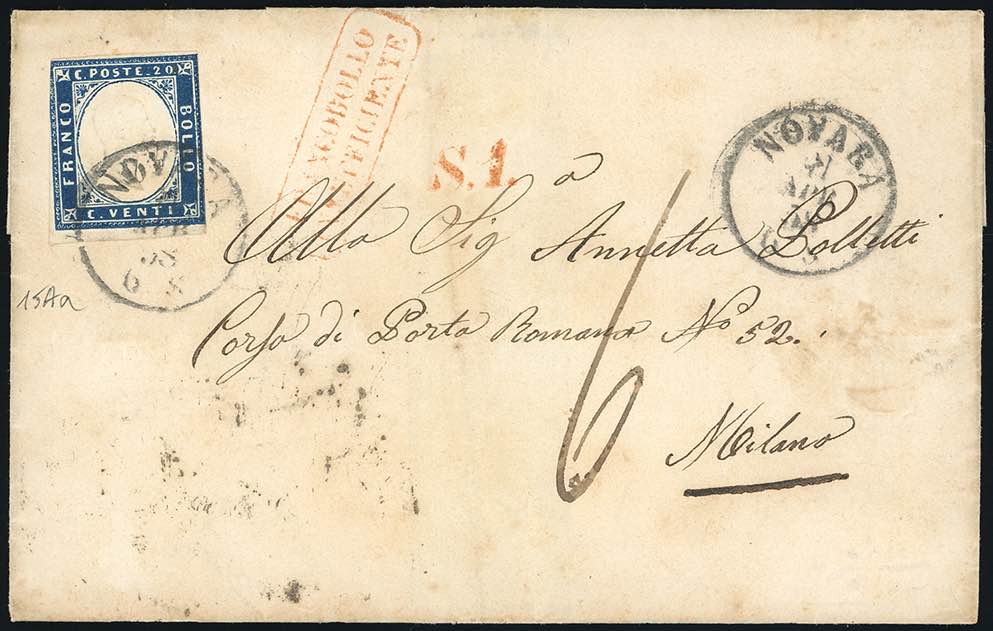 C. POSTE. 20.
FRANCO
BOLLO
C. VENTI
NOVARA
APR
58
6 S
FRANCOBOLLO
INSUFFICIENTE
S.1.
NOVARA
APR
S
Alla Sig.a Annetta Polletti
Corso di Porta Romana No 52.
6
Milano
15Aa